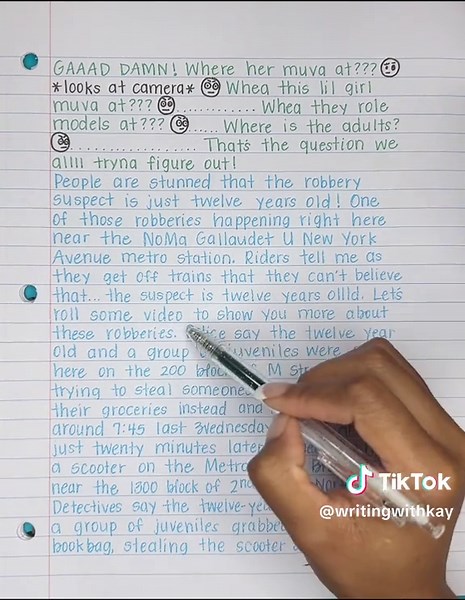 GAAAD DAMN! Where her muva at???
*looks at camera* Whea this lil girl
muva at??? ............. Whea they role
models at??? ..... Where is the adults?
.................. Thats the question we
allll tryna figure out!
People are stunned that the robbery
suspect is just twelve years old! One
of those robberies happening right here
near the NoMa Gallaudet U New York
Avenue metro station. Riders tell me as
they get off trains that they can't believe
that... the suspect is twelve years ollld. Let's
roll some video to show you more about
these robberies. say the twelve year
old and a group juveniles were
here on the 200 M
trying to steal
their groceries instead and
around 7:45 last Wednesday
just twenty minutes
a scooter on the
near the 1300 block of
Detectives say the
a group of juveniles
bookbag, stealing the scooter
TikTok
@writingwithkay